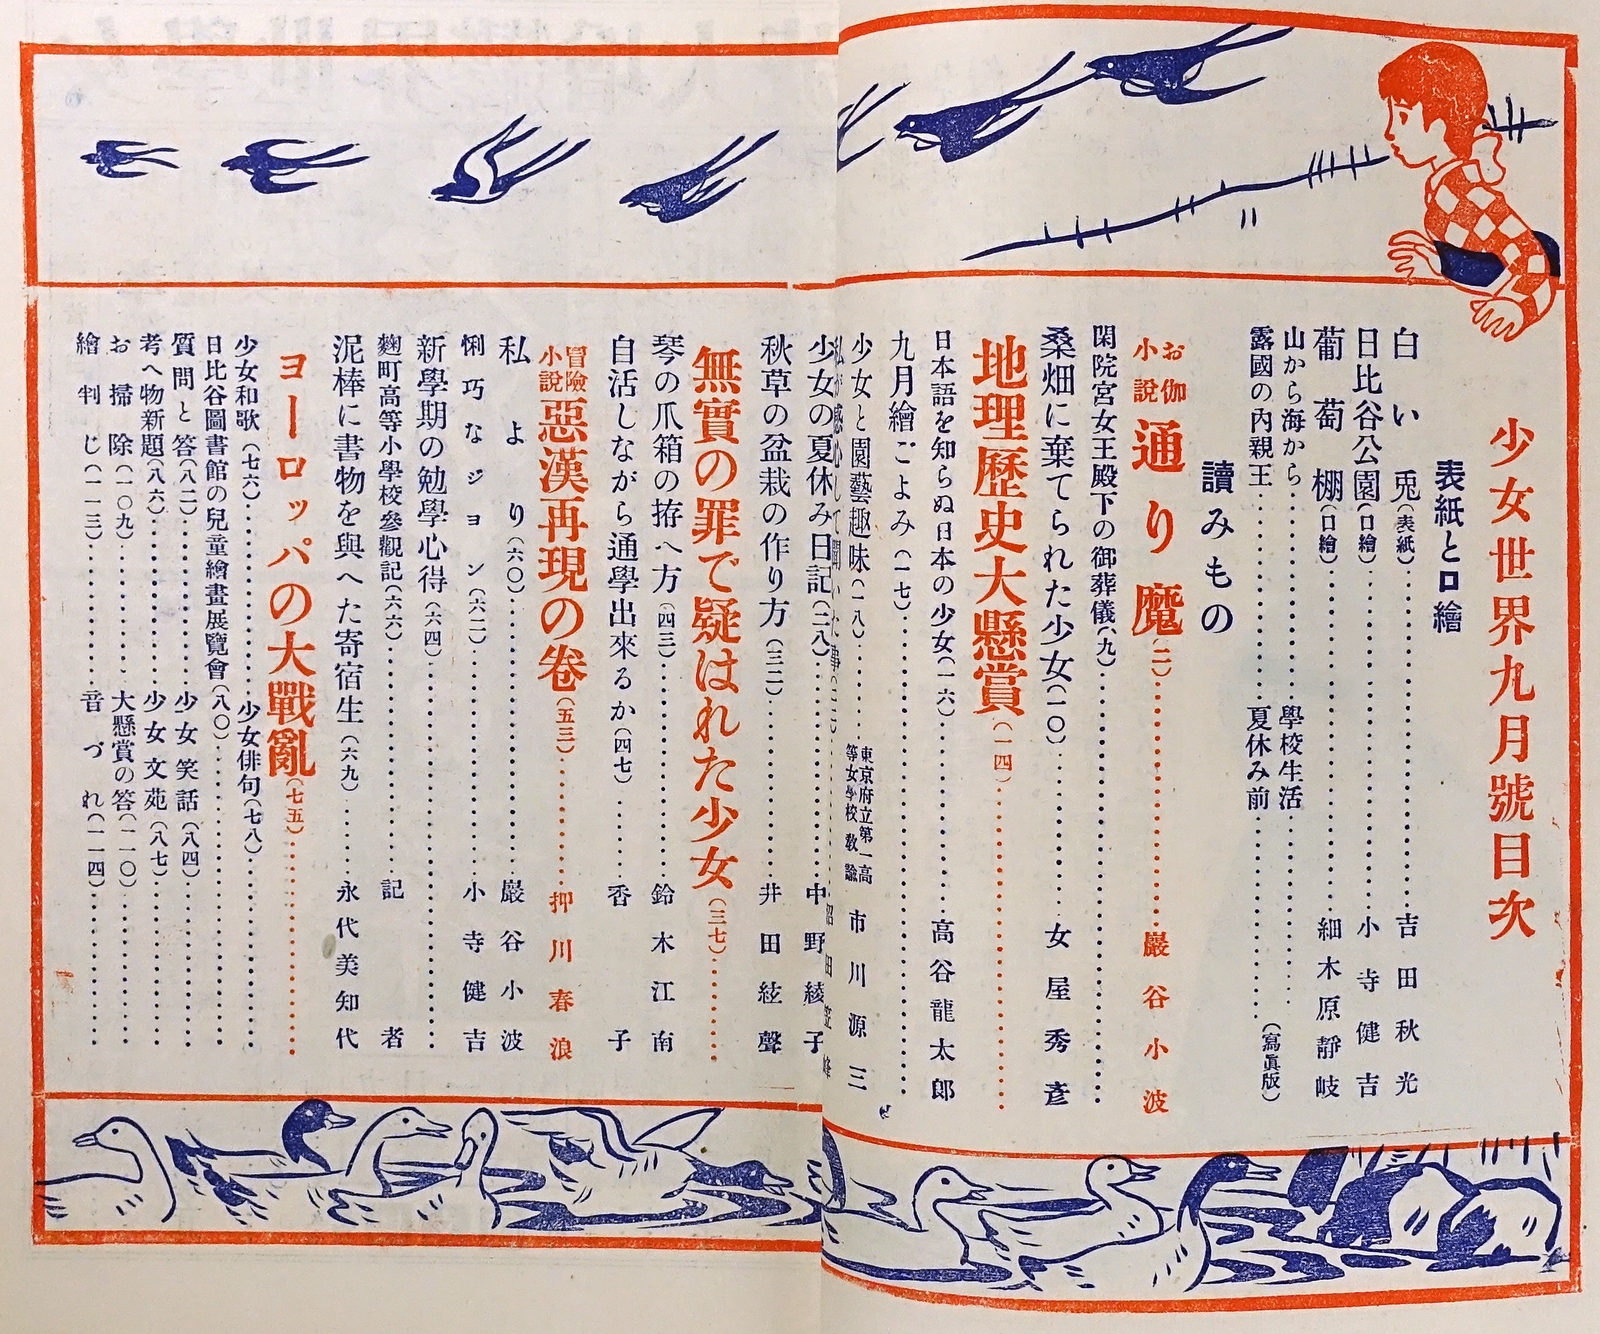 少女世界九月號目次
表紙と口繪
白い兎(表紙)‥‥‥‥吉田秋光
日比谷公園(口繪)‥‥‥‥小寺健吉
葡萄棚(口繪)‥‥‥‥細木原靜岐
山から海から‥‥‥‥學校生活‥‥‥‥
露國の內親王‥‥‥‥夏休み前‥‥‥‥(寫眞版)
讀みもの
お伽小說 通り魔(二)‥‥‥‥巖谷小波
閑院宮女王殿下の御葬儀(九)‥‥‥‥
桑畑に棄てられた少女(一〇)‥‥‥‥女屋秀彥
地理歷史大懸賞(一四)‥‥‥‥
日本語を知らぬ日本の少女(一六)‥‥‥‥高谷龍太郎
九月繪ごよみ(一七)‥‥‥‥
少女と園藝趣味(一八)‥‥‥‥東京府立第一高等女學校敎諭 市川源三
私が感心して聞いた事(二二)‥‥‥‥沼田笠峰
少女の夏休み日記(二八)‥‥‥‥中野綾子
秋草の盆栽の作り方(三二)‥‥‥‥井田絃聲
無實の罪で疑はれた少女(三七)‥‥‥‥
琴の爪箱の拵へ方(四三)‥‥‥‥鈴木江南
自活しながら通學出來るか(四七)‥‥‥‥香子
冒險小說 惡漢再現の卷(五三)‥‥‥‥押川春浪
私より(六〇)‥‥‥‥巖谷小波
悧巧なジョン(六二)‥‥‥‥小寺健吉
新學期の勉學心得(六四)‥‥‥‥
麴町高等小學校參觀記(六六)‥‥‥‥記者
泥棒に書物を與へた寄宿生(六九)‥‥‥‥永代美知代
ヨーロッパの大戰亂(七五)‥‥‥‥
少女和歌(七六)‥‥‥‥少女俳句(七八)‥‥‥‥
日比谷圖書館の兒童繪畫展覽會(八〇)‥‥‥‥
質問と答(八二)‥‥‥‥少女笑話(八四)‥‥‥‥
考へ物新題(八六)‥‥‥‥少女文苑(八七)‥‥‥‥
お掃除(一〇九)‥‥‥‥大懸賞の答(一一〇)‥‥‥‥
繪判じ(一一三)‥‥‥‥音づれ(一一四)‥‥‥‥